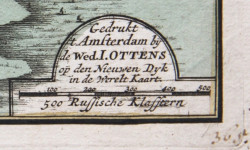 Gedrukt
t'Amsterdam bij
de Wed. I. OTTENS
op den Nieuwen Dyk
in de Werelt Kaart.
100 200 300 400 500
500 Russische Klafftern